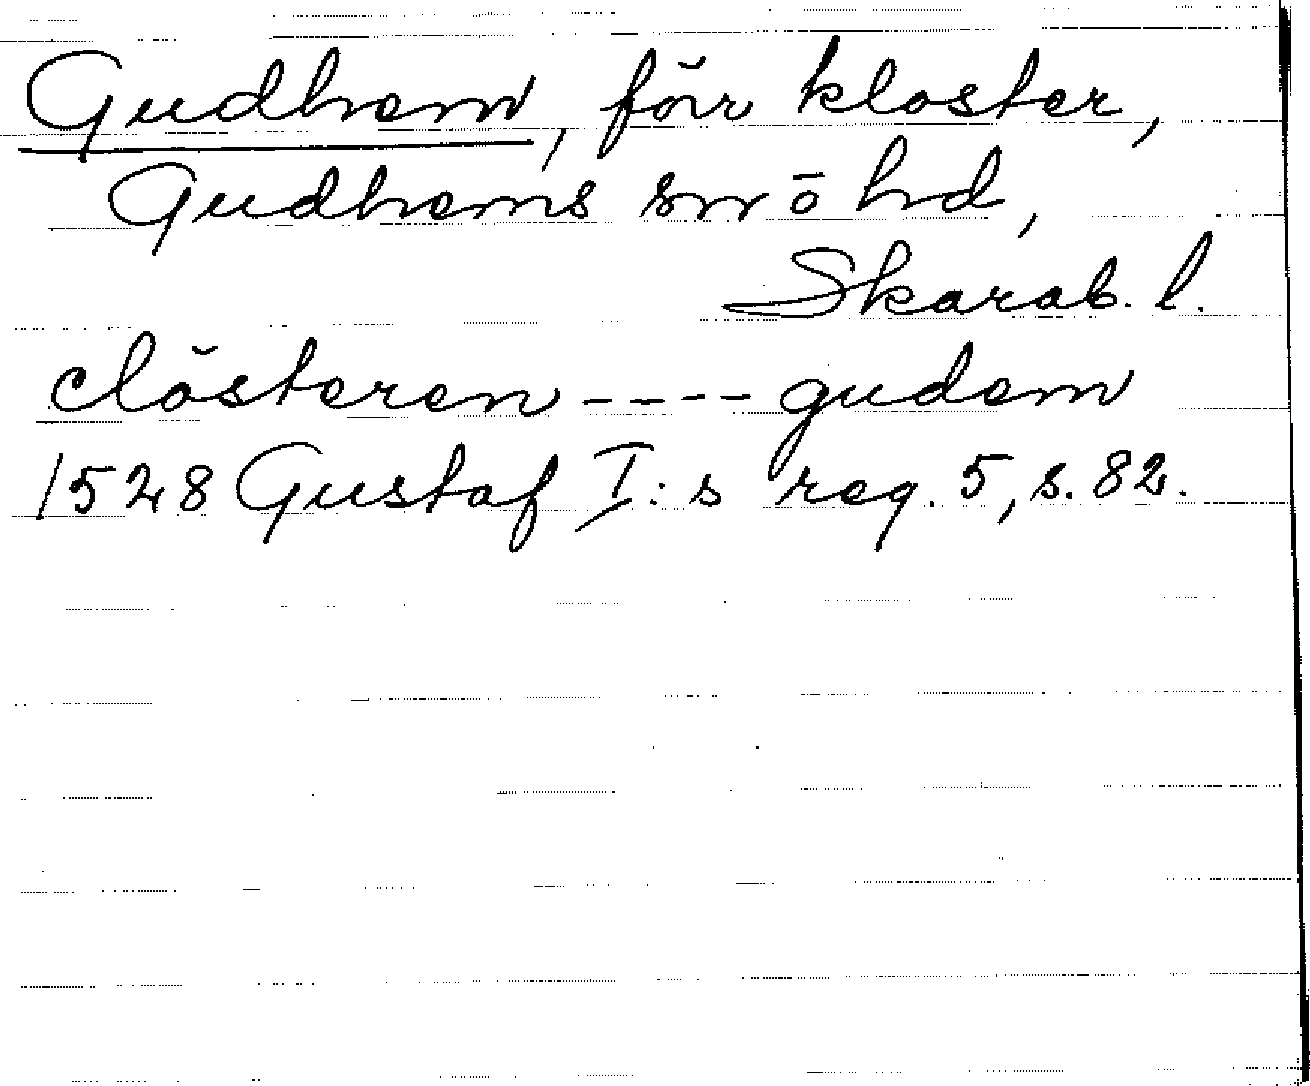 Gudhem, förr kloster,
Gudhems sn o hd,
Skarab. l.
clösteren ---- gudem
1528 Gustaf I:s reg. 5, s. 82.